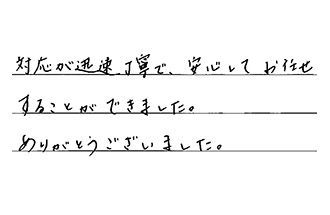 対応が迅速、丁寧で、安心してお任せ
することができました。
ありがとうございました。